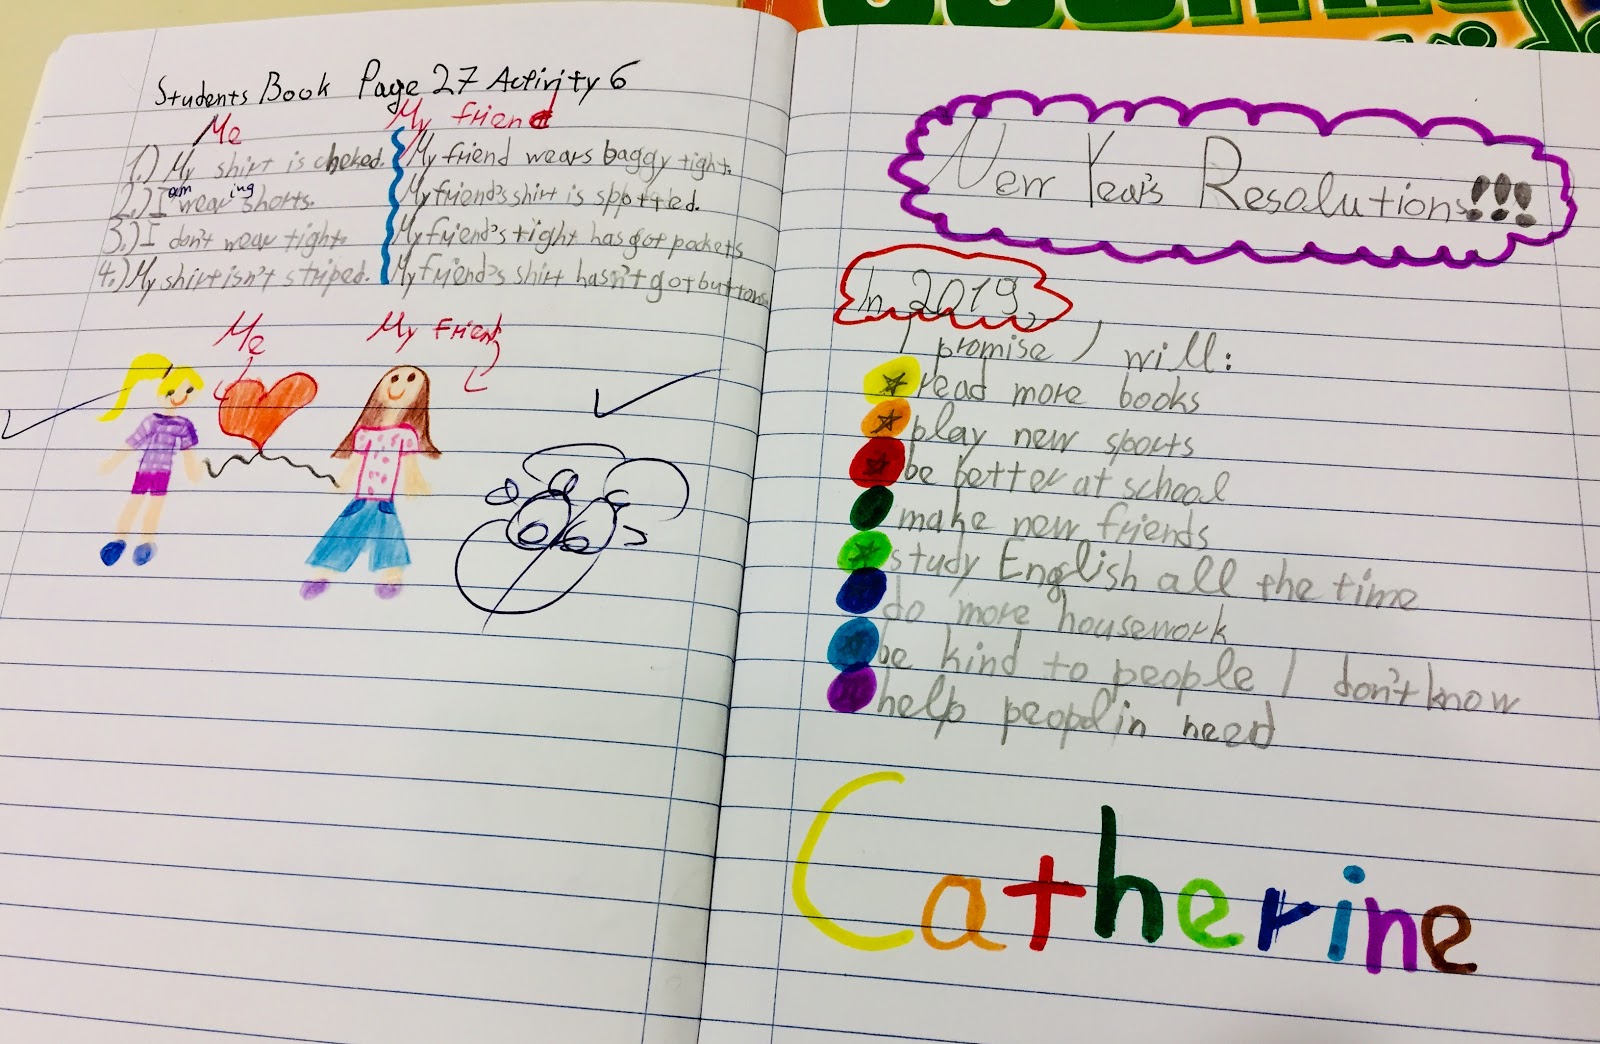 Students Book Page 27 Activity 6
Me
1.) My shirt is cheked.
2.) I am wearing shorts.
3.) I don't wear tight.
4.) My shirt isn't striped.
My friend
My friend wears baggy tight.
My friend's shirt is spotted.
My friend's tight has got pockets
My friend's shirt hasn't got buttons.
Me
My Friend
New Year's Resolutions!!!
In 2019,
I promise I will:
read more books
play new sports
be better at school
make new friends
study English all the time
do more housework
be kind to people I don't know
help peopl in need
Catherine